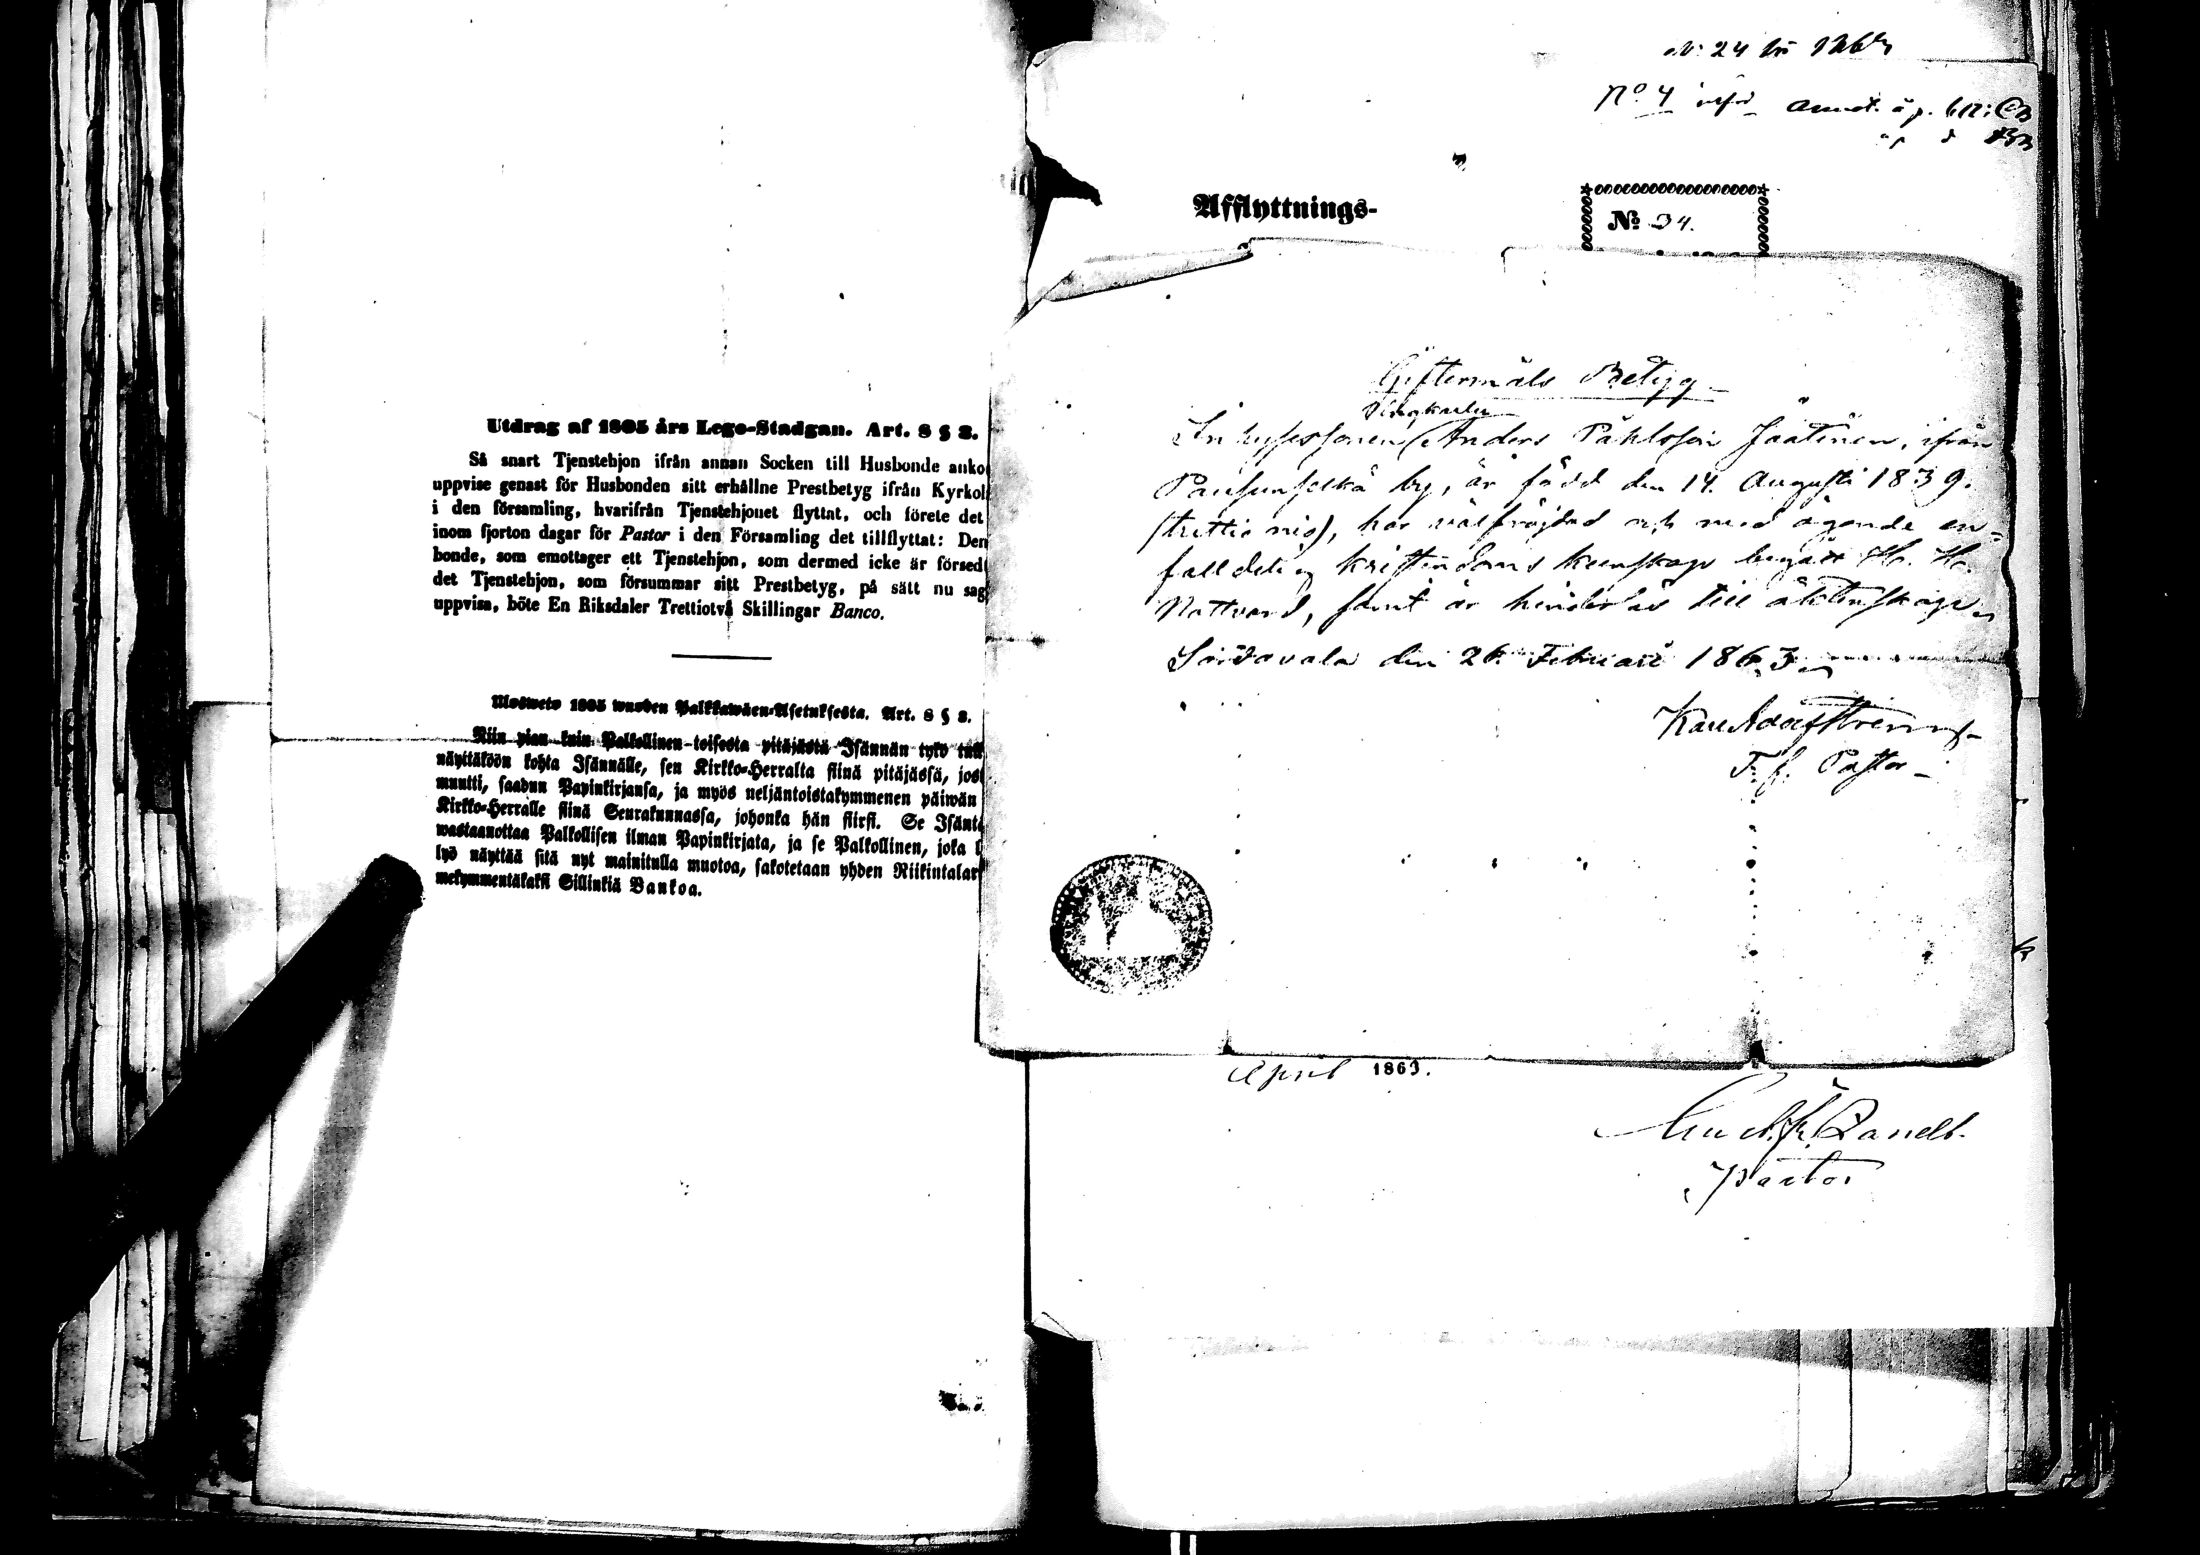 Utdrag af 1805 års Lego-Stadgan. Art. 8 § 8.
Så snart Tjenstehjon ifrån annan Socken till Husbonde anko
uppvise genast för Husbonden sitt erhållne Prestbetyg ifrån Kyrkoh
i den församling, hvarifrån Tjenstehjonet flyttat, och förete det
inom fjorton dagar för Pastor i den Församling det tillflyttat: Den
bonde, som emottager ett Tjenstehjon, som dermed icke är försed
det Tjenstehjon, som försummar sitt Prestbetyg, på sätt nu sag
uppvisa, böte En Riksdaler Trettiotvå Skillingar Banco.
Ulosweto 1805 wuoden Palkkawäen-Asetuksesta. Art. 8 § 8.
Niin pian kuin Palkollinen toisesta pitäjästä Isännän tykö tull
näyttäköön kohta Isännälle, sen Kirkko-Herralta siinä pitäjässä, jos
muutti, saadun Papinkirjansa, ja myös neljäntoistakymmenen päiwän
Kirkko-Herralle siinä Seurakunnassa, johonka hän siirsi. Se Isänt
wastaanottaa Palkollisen ilman Papinkirjata, ja se Palkollinen, joka l
lyö näyttää sitä nyt mainitulla muotoa, sakotetaan yhden Riikintalar
mekymmentäkaksi Sillinkiä Bankoa.
N: 24
No. 4
Afflyttnings-
No. 34.
Giftermåls Betyg
Ynglingen
Inhysessonen Anders Påhlsson Jäätinen, ifrån
by, är född den 14. Augusti 1839.
(trettio nio), har välfräjdad och med ägande en-
faldelig kristendoms kunskap begått H. H.
Nattvard, samt är hinderlös till äktenskap.
Sordavala den 26 Februari 1863.
T. f. Pastor
April 1863.
Pastor